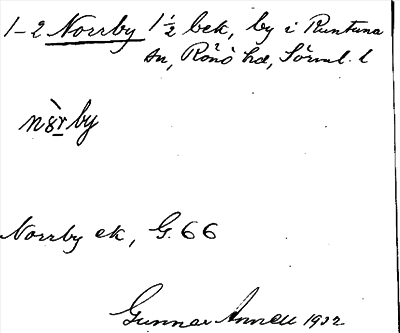 1-2 Norrby 1 1/2 bek, by i Runtuna
sn, Rönö hd, Sörml. l
nòrby
Norrby ek, G. 66
Gunnar Annell 1932